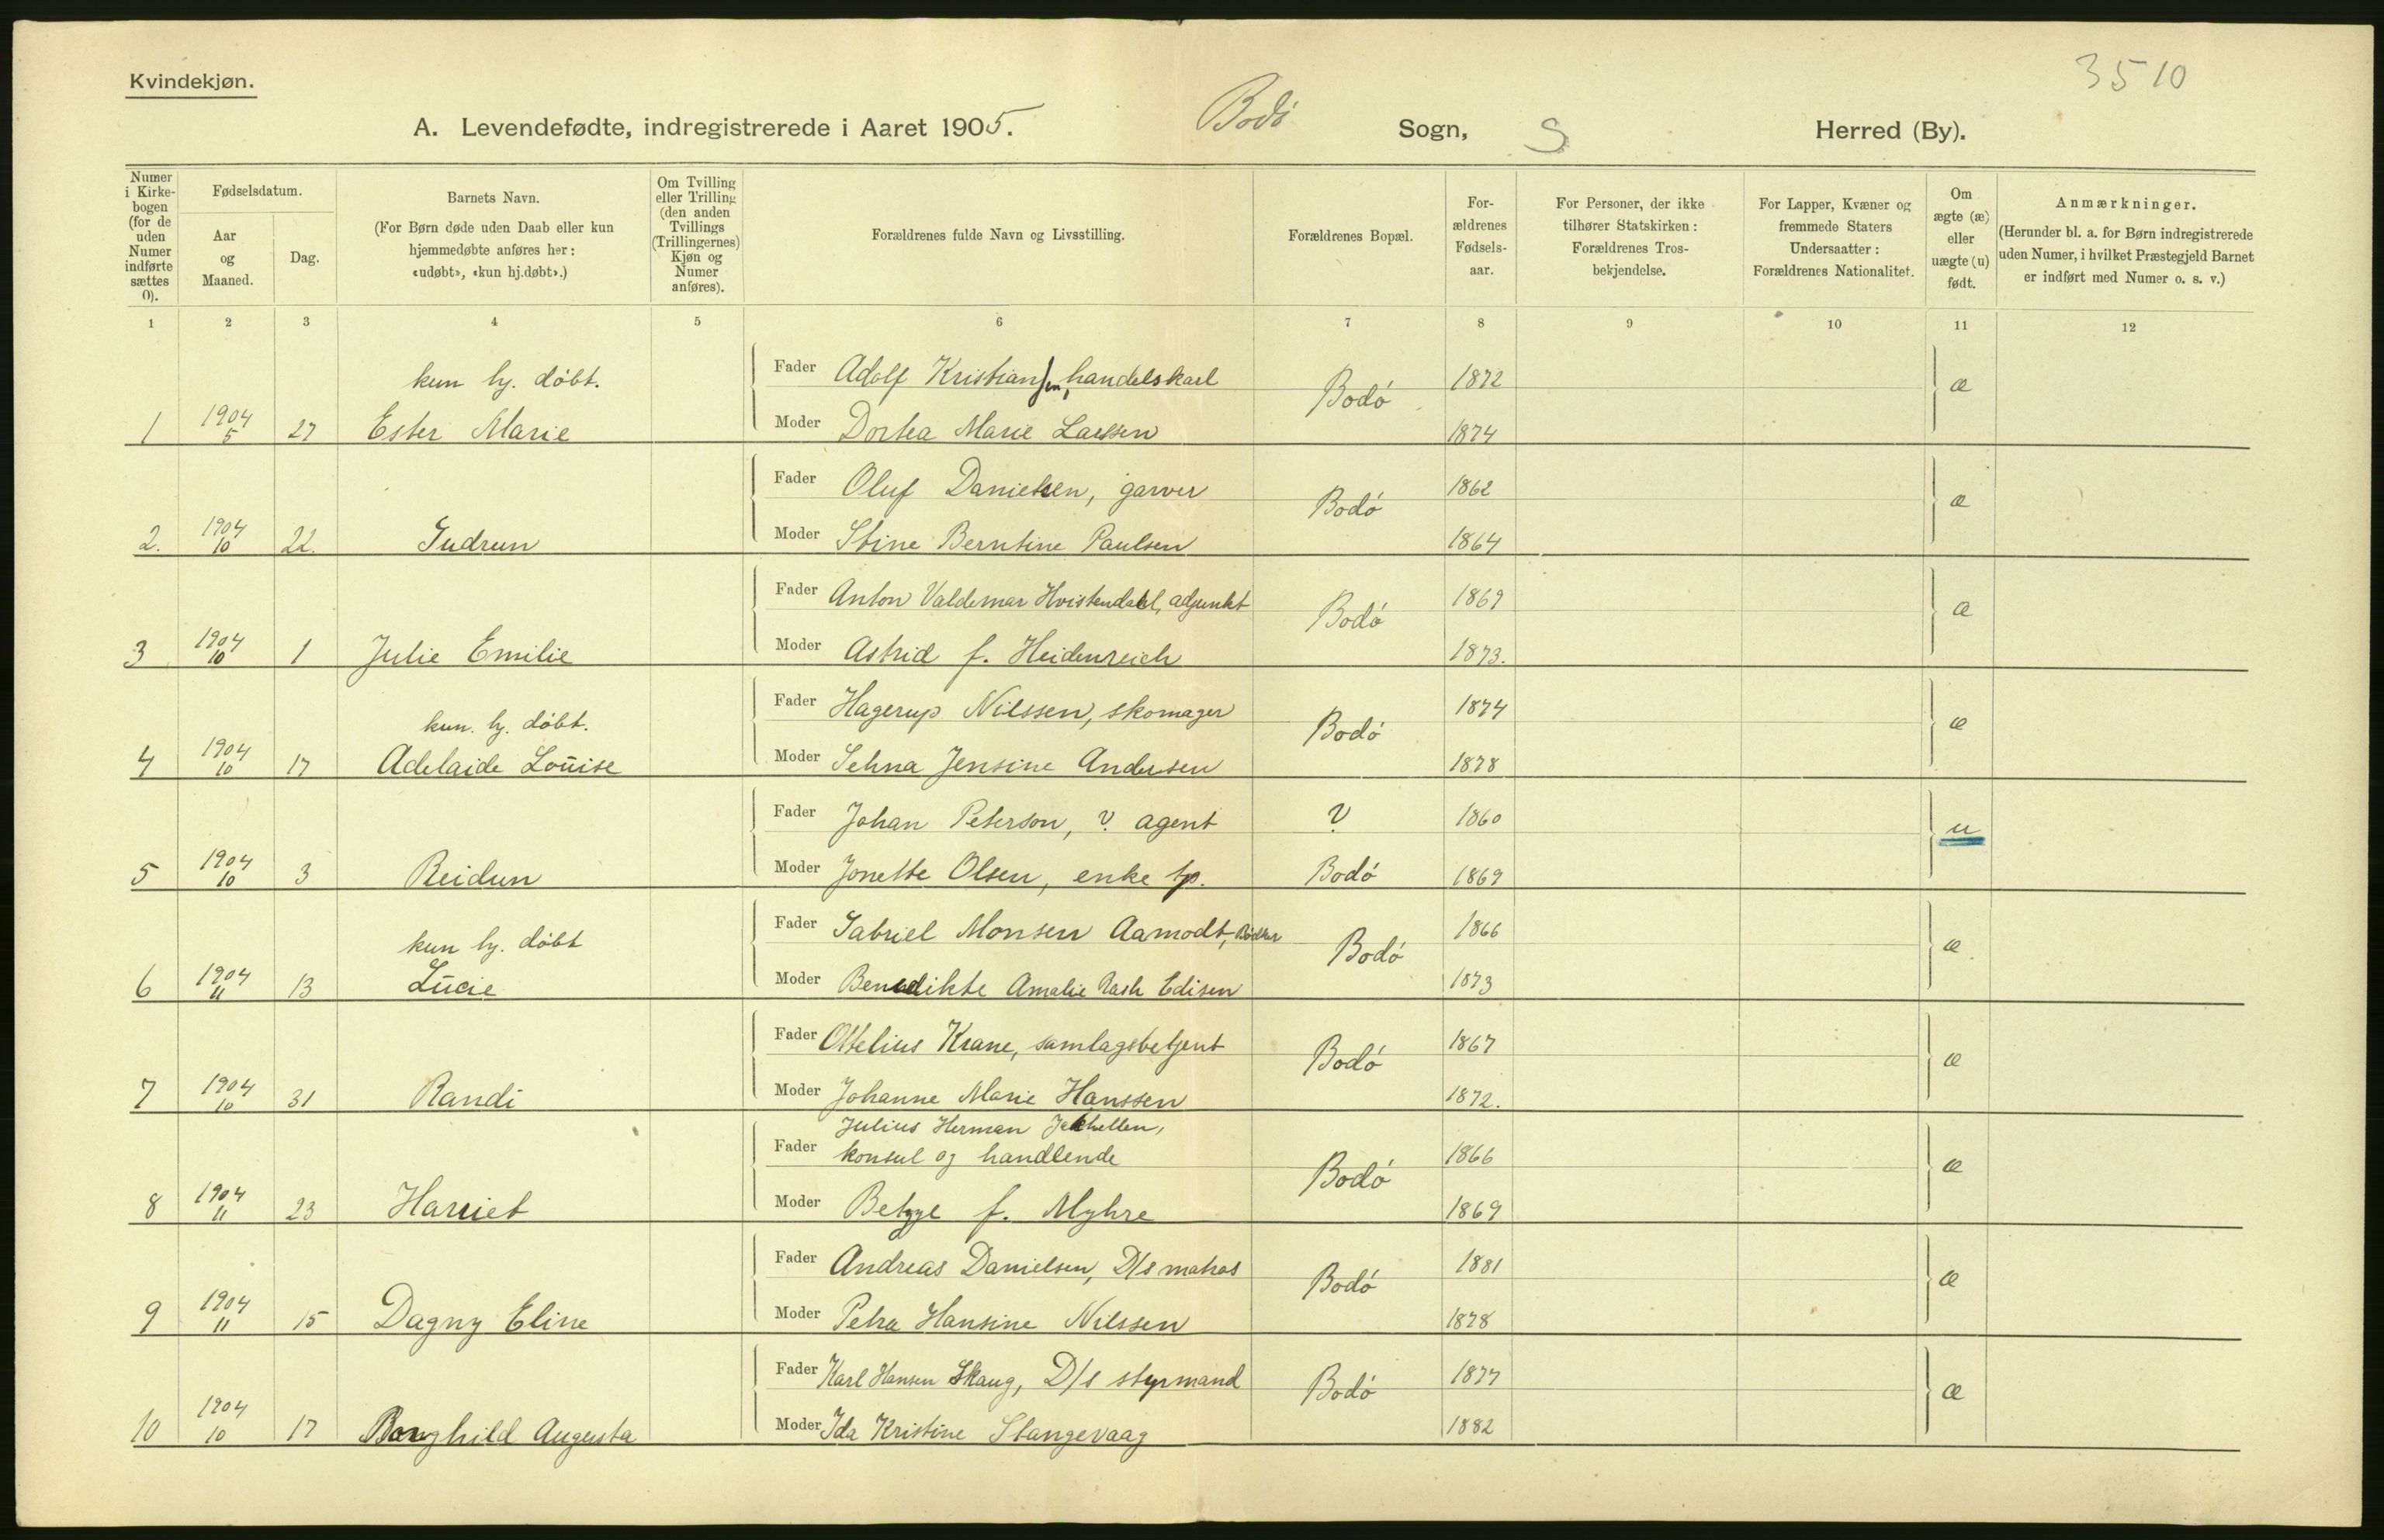 3510
Kvindekjøn.
A. Levendefødte, indregistrerede i Aaret 1905. Bodó Sogn, S Herred (By).
Numer i Kirke-bogen (for de uden Numer indførte sættes 0).
Fødselsdatum.
Aar og Maaned.
Dag.
Barnets Navn.
(For Børn døde uden Daab eller kun hjemmedøbte anføres her: «udøbt», «kun hj.døbt».)
Om Tvilling eller Trilling (den anden Tvillings (Trillingernes) Kjøn og Numer anføres).
Forældrenes fulde Navn og Livsstilling.
Forældrenes Bopæl.
For-ældrenes Fødsels-aar.
For Personer, der ikke tilhører Statskirken: Forældrenes Tros-bekjendelse.
For Lapper, Kvæner og fremmede Staters Undersaatter: Forældrenes Nationalitet.
Om ægte (æ) eller uægte (u) født.
Anmærkninger.
(Herunder bl. a. for Børn indregistrerede uden Numer, i hvilket Præstegjeld Barnet er indført med Numer o. s. v.)
1 2 3 4 5 6 7 8 9 10 11 12
kun hj. dóbt. Fader Adolf Kristiansen, handelskarl Bodó 1872 æ
1 1904 5 27 Ester Marie Moder Dortea Marie Larssen 1874
Fader Oluf Danielsen, garver Bodó 1862 æ
2. 1904 10 22. Gudrun Moder Stine Berntine Paulsen 1864
Fader Anton Valdemar Hvistendahl, adjunkt Bodó 1869 æ
3 1904 10 1 Julie Emilie Moder Astrid f. Heidenreich 1873.
kun. hj. dóbt. Fader Hagerup Nilssen, skomager Bodó 1874 æ
4 1904 10 17 Adelaide Louise Moder Jensine Andersen 1878
Fader Johan Peterson, ? agent ? 1860 u
5 1904 10 3 Reidun Moder Jonette Olsen, enke tp. Bodó 1869
kun hj. dóbt Fader Gabriel Monsen Aamodt, Bódker Bodó 1866 æ
6 1904 11 13 Lucie Moder Benedikte Amalie Rash Edisen 1873
Fader Ottelius Krane, samlagsbetjent Bodó 1867 æ
7 1904 10 31 Randi Moder Johanne Marie Hanssen 1872.
Julius Herman Jakhellen,
Fader konsul og handlende Bodó 1866 æ
8 1904 11 23 Harriet Moder f. Myhre 1869
Fader Andreas Danielsen, D/s matros Bodó 1881 æ
9 1904 11 15 Dagny Eline Moder Petra Hansine Nilssen 1878
Fader Karl Hansen Skaug, D/s styrmand Bodó 1877 æ
10 1904 10 17 Borghild Augusta Moder Ida Kristine Stangevaag 1882